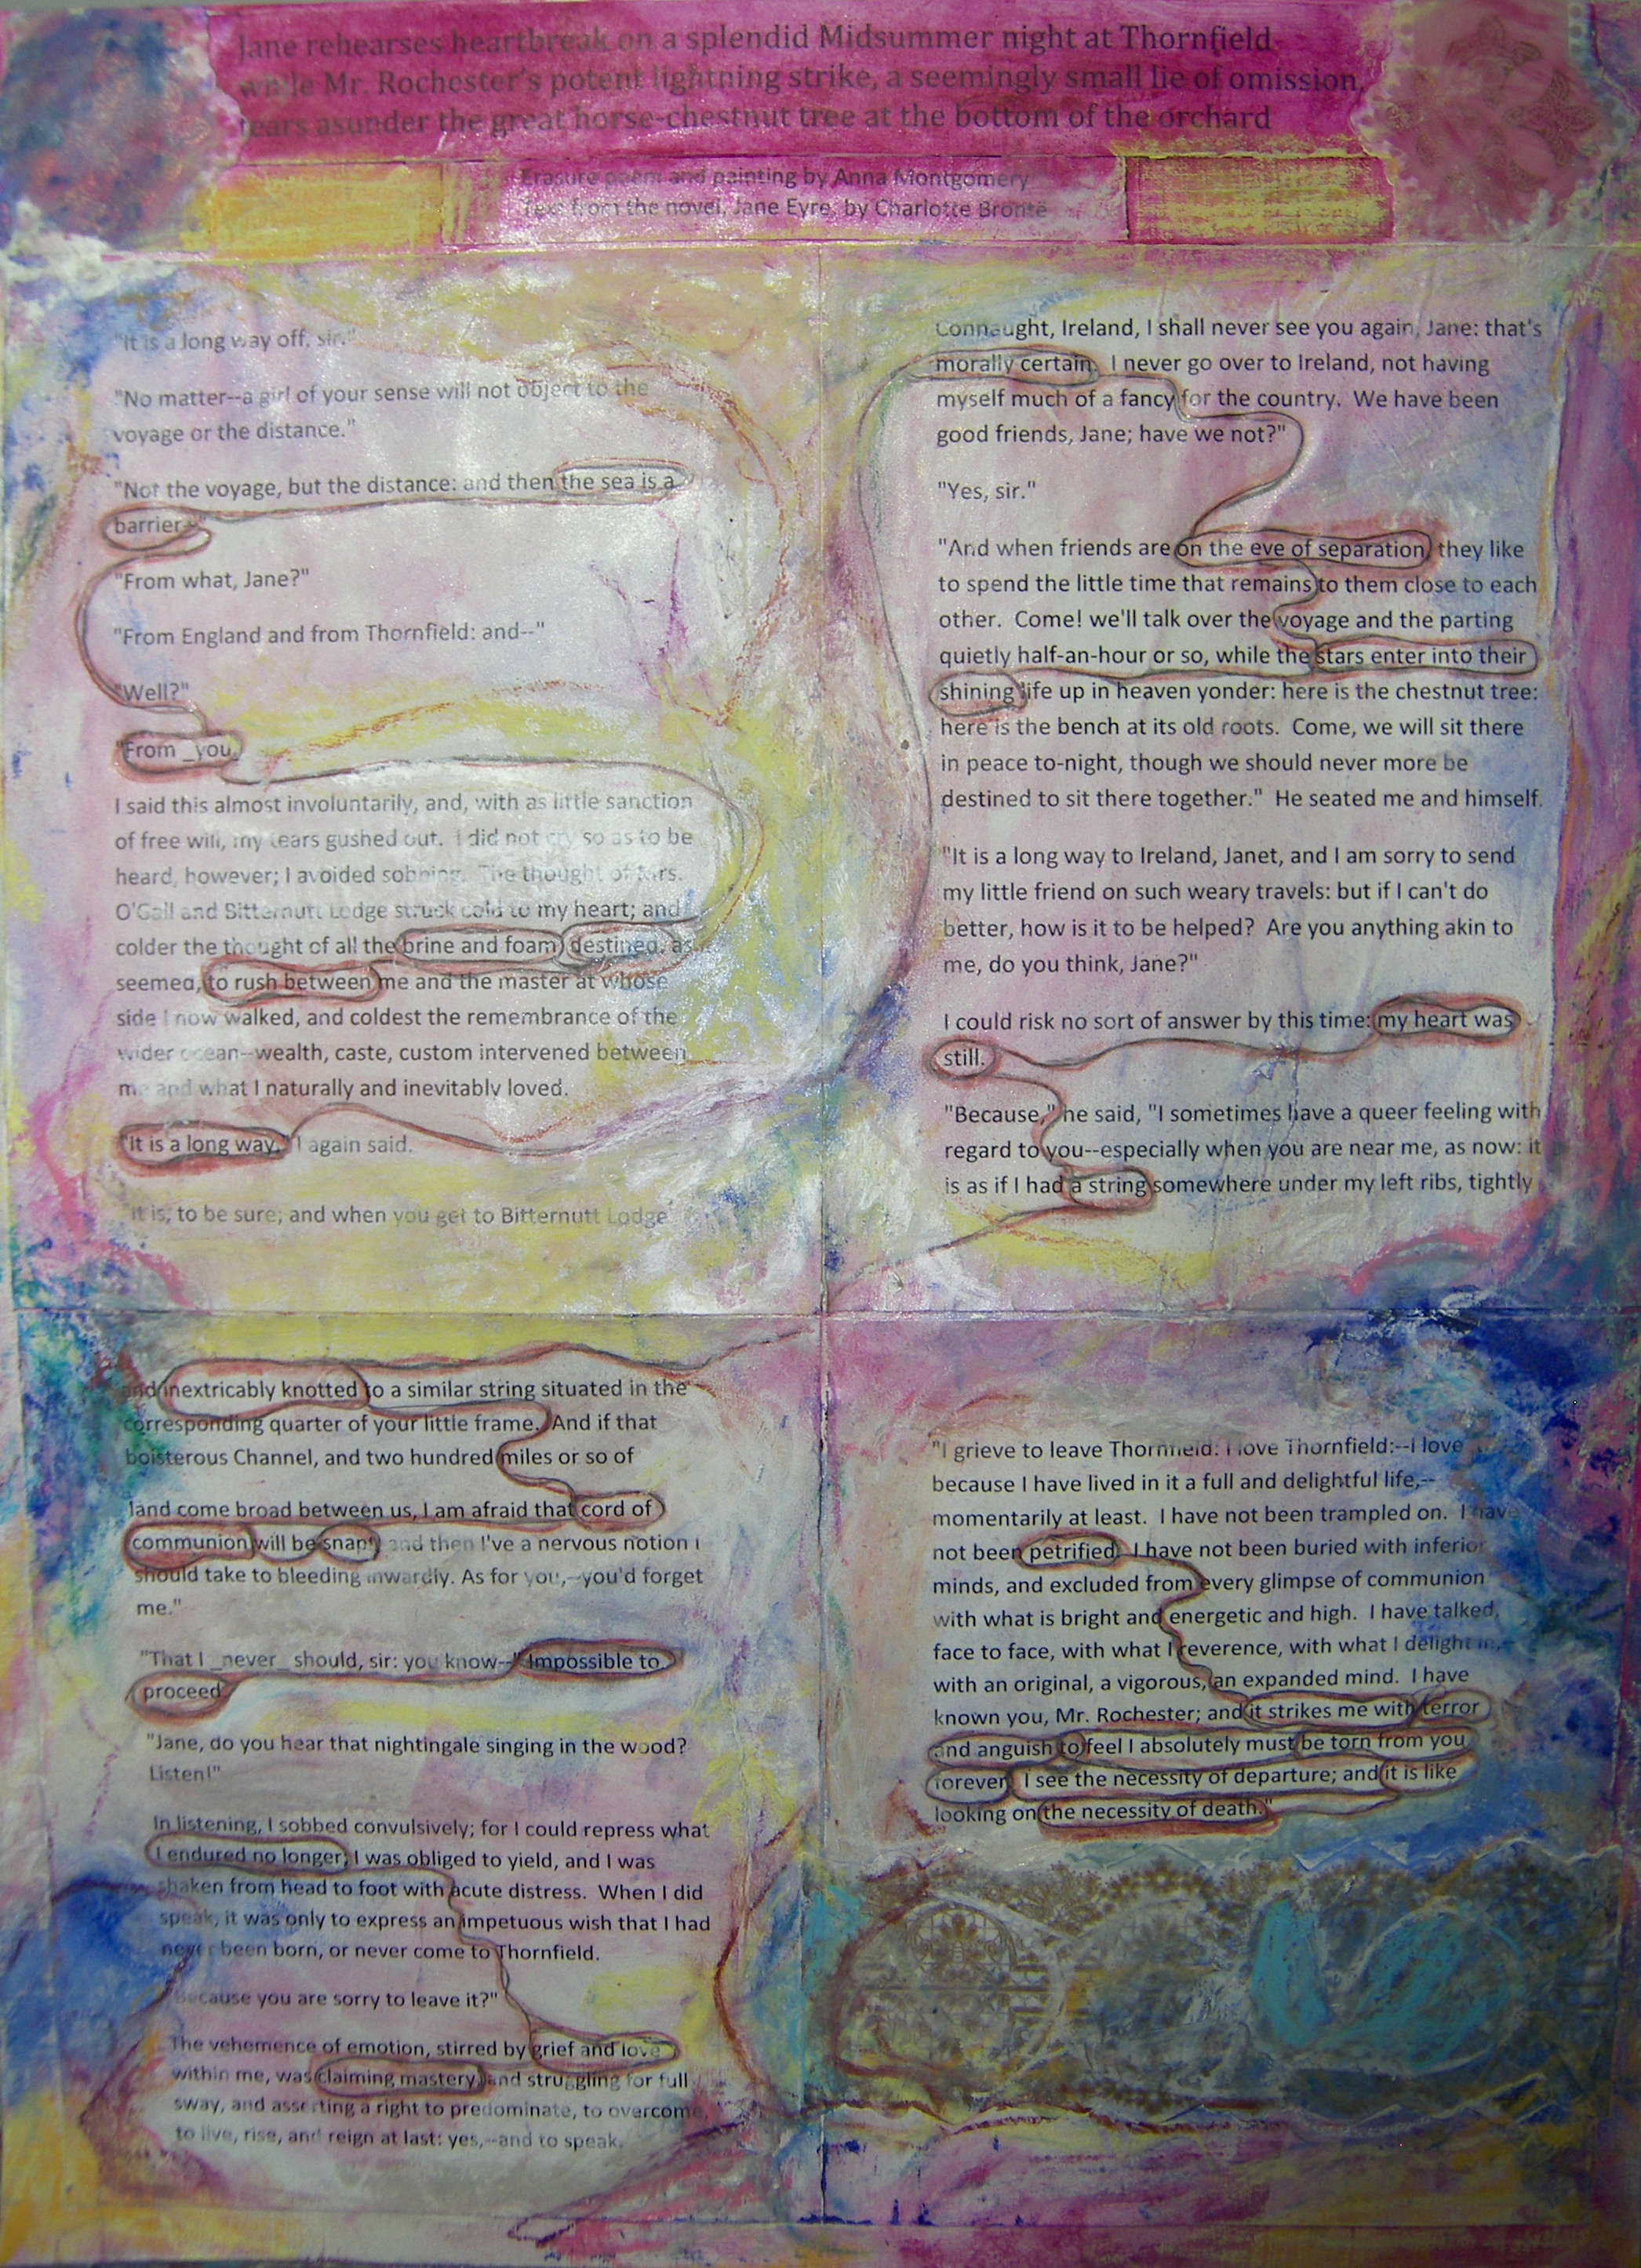 Jane rehearses heartbreak on a splendid Midsummer night at Thornfield
while Mr. Rochester's potent lightning strike, a seemingly small lie of omission,
tears asunder the great horse-chestnut tree at the bottom of the orchard
Erasure poem and painting by Anna Montgomery
Text from the novel, Jane Eyre, by Charlotte Brontë
"It is a long way off, sir."
"No matter--a girl of your sense will not object to the
voyage or the distance."
"Not the voyage, but the distance: and then the sea is a
barrier--"
"From what, Jane?"
"From England and from Thornfield: and--"
"Well?"
"From _you
I said this almost involuntarily, and, with as little sanction
of free will, my tears gushed out. I did not cry so as to be
heard, however; I avoided sobbing. The thought of Mrs.
O'Gall and Bitternutt Lodge struck cold to my heart; and
colder the thought of all the brine and foam, destined, as
seemed, to rush between me and the master at whose
side I now walked, and coldest the remembrance of the
wider ocean--wealth, caste, custom intervened between
me and what I naturally and inevitably loved.
"It is a long way," I again said.
"It is, to be sure; and when you get to Bitternutt Lodge
Connaught, Ireland, I shall never see you again, Jane: that's
morally certain. I never go over to Ireland, not having
myself much of a fancy for the country. We have been
good friends, Jane; have we not?"
"Yes, sir."
"And when friends are on the eve of separation, they like
to spend the little time that remains to them close to each
other. Come! we'll talk over the voyage and the parting
quietly half-an-hour or so, while the stars enter into their
shining life up in heaven yonder: here is the chestnut tree:
here is the bench at its old roots. Come, we will sit there
in peace to-night, though we should never more be
destined to sit there together." He seated me and himself.
"It is a long way to Ireland, Janet, and I am sorry to send
my little friend on such weary travels: but if I can't do
better, how is it to be helped? Are you anything akin to
me, do you think, Jane?"
I could risk no sort of answer by this time: my heart was
still.
"Because," he said, "I sometimes have a queer feeling with
regard to you--especially when you are near me, as now: it
is as if I had a string somewhere under my left ribs, tightly
and inextricably knotted to a similar string situated in the
corresponding quarter of your little frame. And if that
boisterous Channel, and two hundred miles or so of
land come broad between us, I am afraid that cord of
communion will be snapt; and then I've a nervous notion I
should take to bleeding inwardly. As for you,--you'd forget
me."
"That I _never_ should, sir: you know--" Impossible to
proceed.
"Jane, do you hear that nightingale singing in the wood?
Listen!"
In listening, I sobbed convulsively; for I could repress what
I endured no longer; I was obliged to yield, and I was
shaken from head to foot with acute distress. When I did
speak, it was only to express an impetuous wish that I had
never been born, or never come to Thornfield.
"Because you are sorry to leave it?"
The vehemence of emotion, stirred by grief and love
within me, was claiming mastery, and struggling for full
sway, and asserting a right to predominate, to overcome,
to live, rise, and reign at last: yes,--and to speak.
"I grieve to leave Thornfield: I love Thornfield:--I love
because I have lived in it a full and delightful life,--
momentarily at least. I have not been trampled on. I have
not been petrified. I have not been buried with inferior
minds, and excluded from every glimpse of communion
with what is bright and energetic and high. I have talked,
face to face, with what I reverence, with what I delight in,--
with an original, a vigorous, an expanded mind. I have
known you, Mr. Rochester; and it strikes me with terror
and anguish to feel I absolutely must be torn from you
forever. I see the necessity of departure; and it is like
looking on the necessity of death."